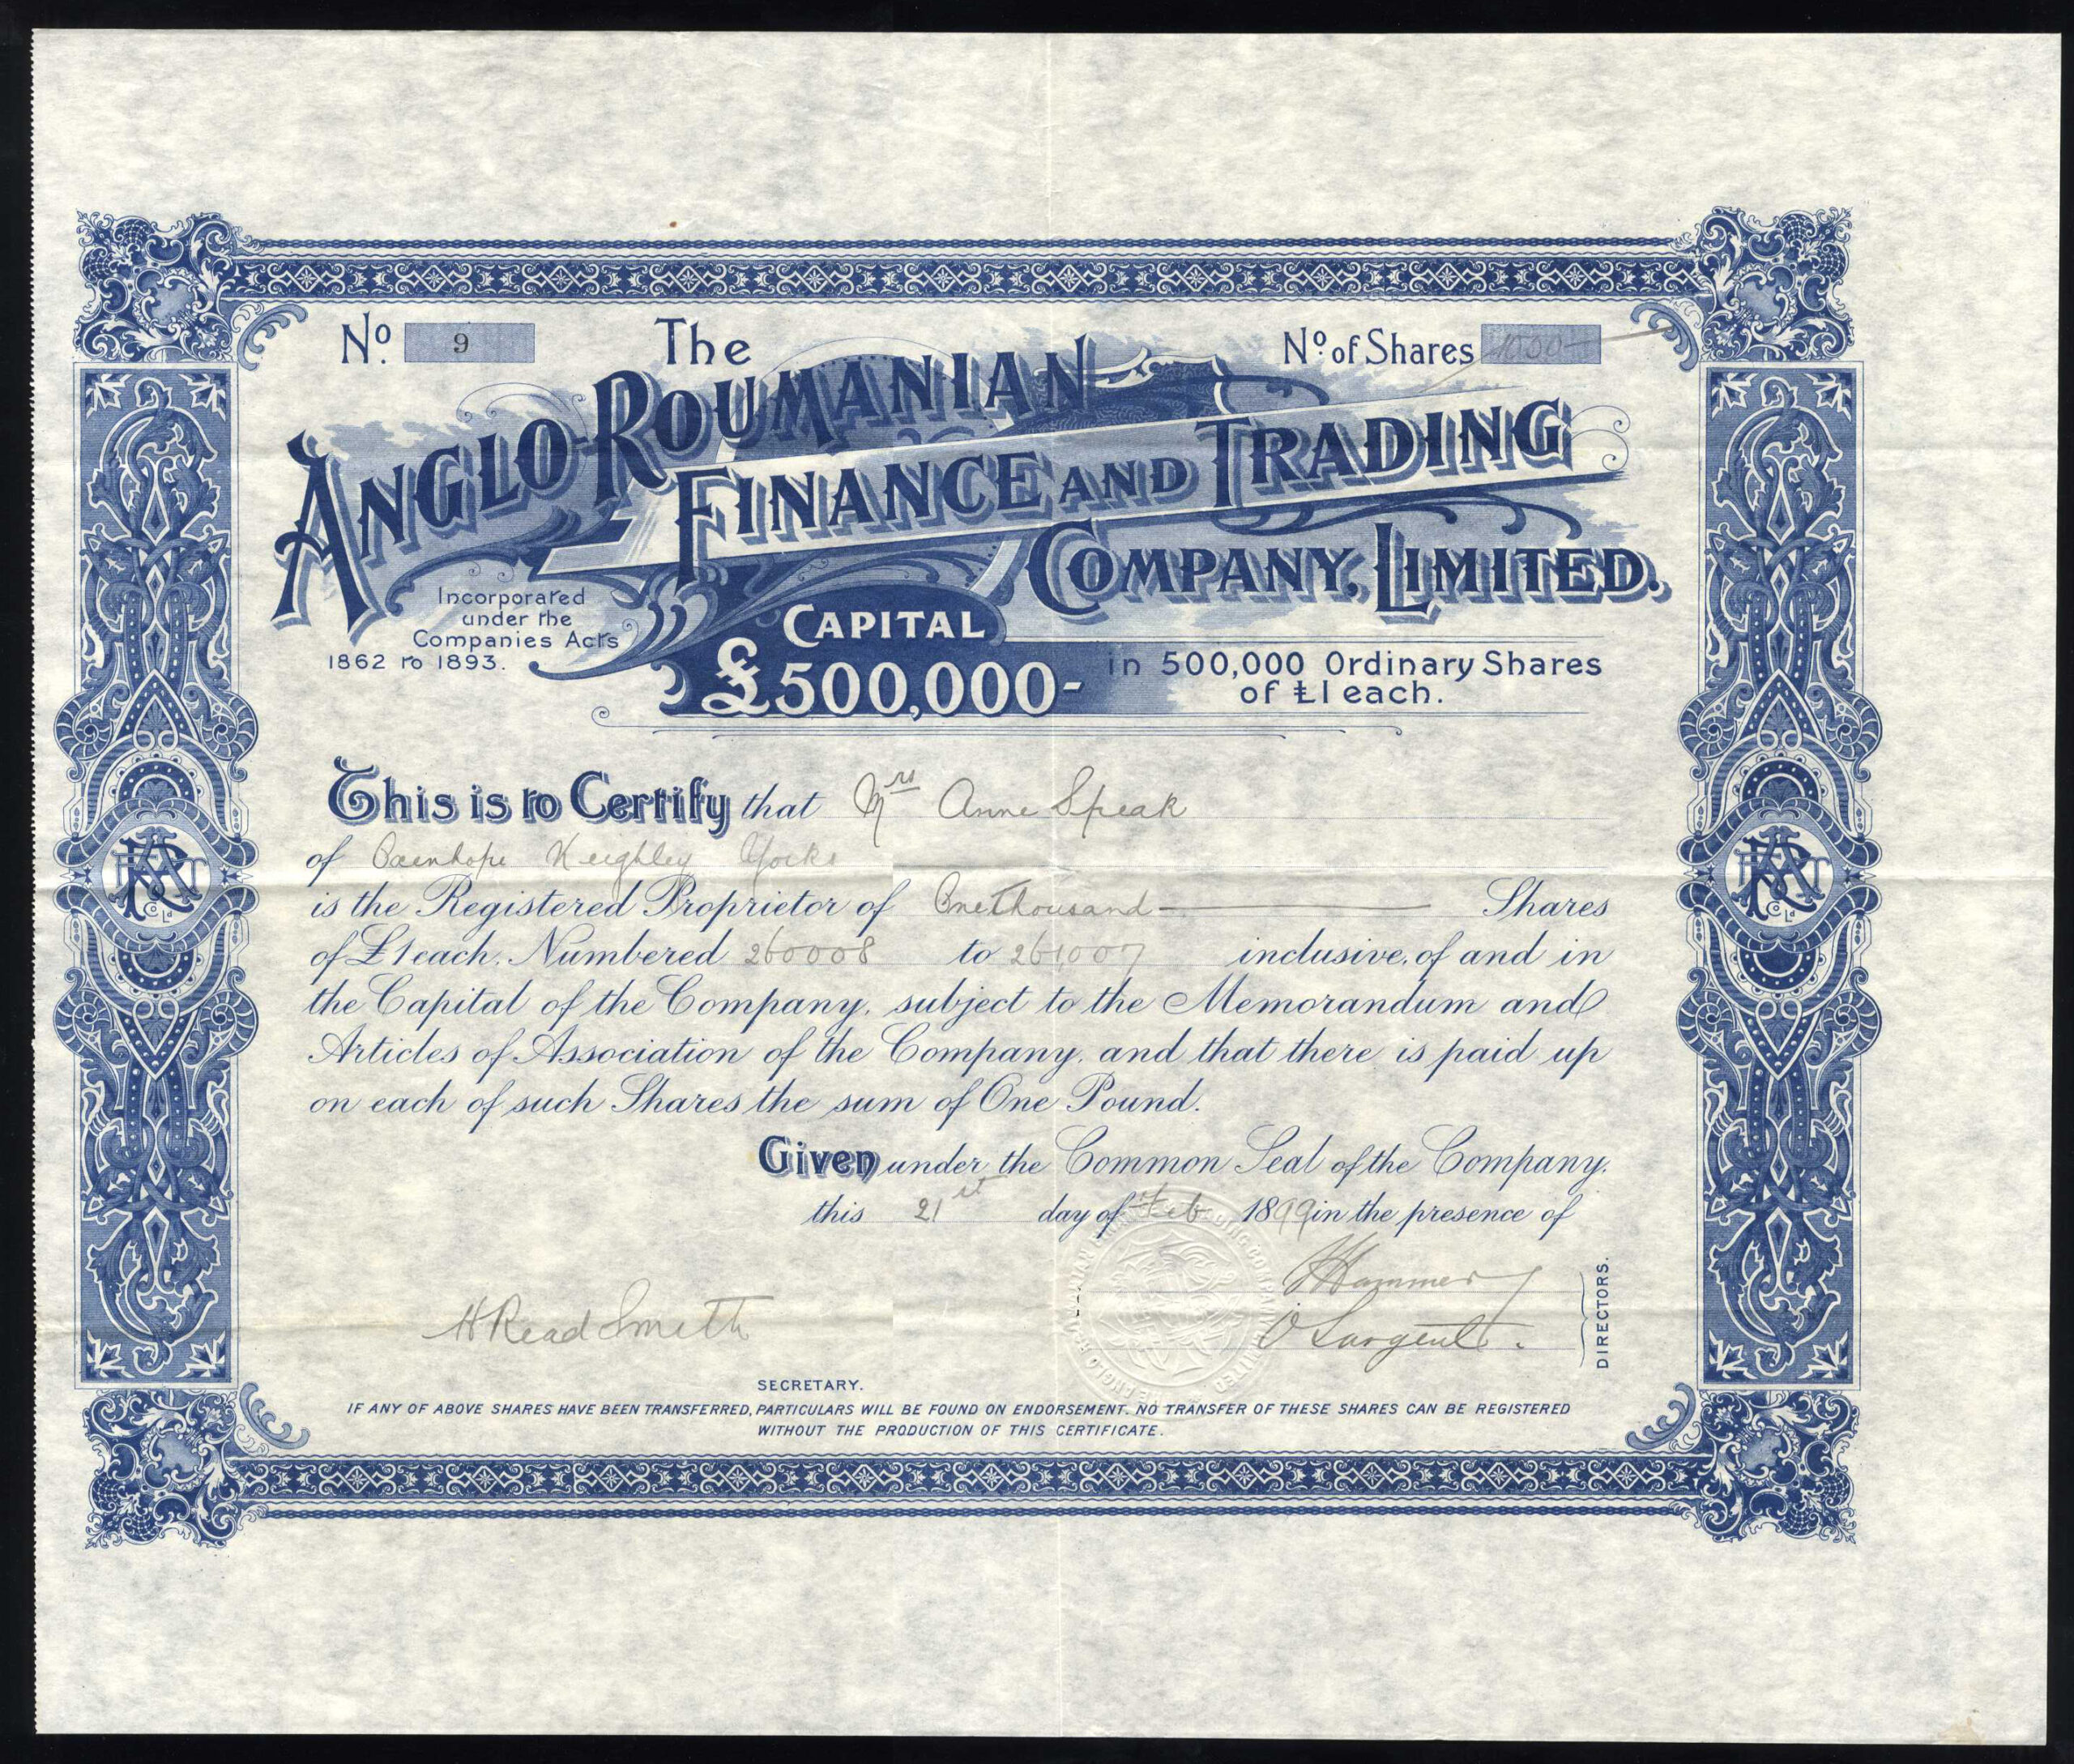 No. 9
The
No. of Shares 1000-
ANGLO-ROUMANIAN
FINANCE AND TRADING
COMPANY, LIMITED.
Incorporated
under the
Companies Acts
1862 to 1893.
CAPITAL
£500,000-
in 500,000 Ordinary Shares
of £1 each.
This is to Certify that Mrs Anne Speak
of Oxenhope Keighley Yorks
is the Registered Proprietor of One Thousand Shares
of £1 each, Numbered 260008 to 261007 inclusive, of and in
the Capital of the Company, subject to the Memorandum and
Articles of Association of the Company, and that there is paid up
on each of such Shares the sum of One Pound.
Given under the Common Seal of the Company,
this 21st day of Feb 1899 in the presence of
Hammer
H Read Smith
O Sargent.
DIRECTORS.
SECRETARY.
IF ANY OF ABOVE SHARES HAVE BEEN TRANSFERRED, PARTICULARS WILL BE FOUND ON ENDORSEMENT. NO TRANSFER OF THESE SHARES CAN BE REGISTERED
WITHOUT THE PRODUCTION OF THIS CERTIFICATE.